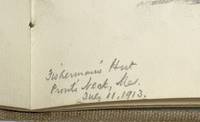 Fisherman's Hut
Prout's Neck, Me.
July 11, 1913.